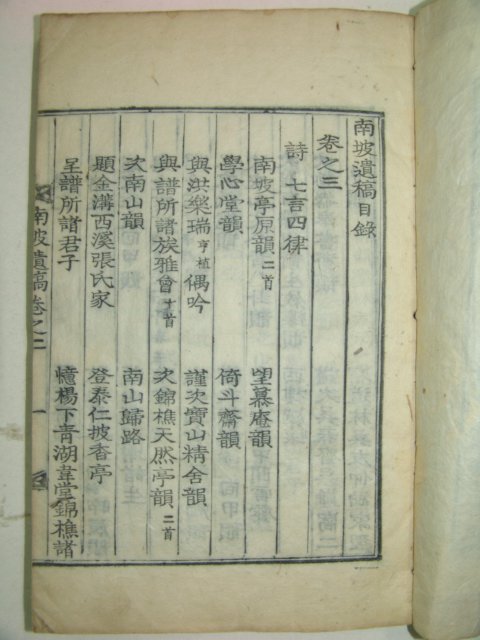 南坡遺稿目錄
卷之三
詩 七言四律
南坡亭原韻二首 望慕庵韻
學心堂韻 倚斗齋韻
與洪樂瑞亨植偶吟 謹次寶山精舍韻
與譜所諸族雅會十首 次錦樵天然亭韻二首
次南山韻 南山歸路
題金溝西溪張氏家 登泰仁披香亭
呈譜所諸君子 憶楊下青湖韋堂錦樵諸
南坡遺稿卷之三 一